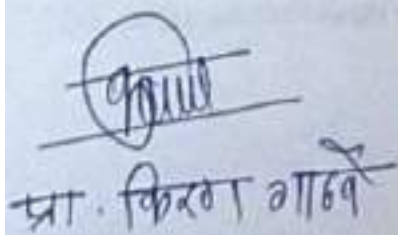 प्रा. किरण गाढवे